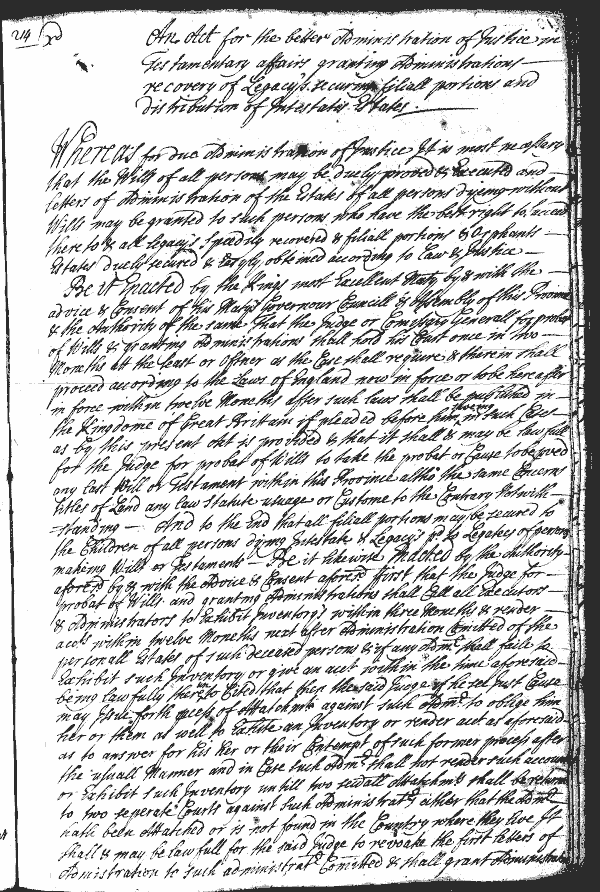 214
An Act for the better Administration of Justice in
Testamentary affairs granting Administrations
recovery of Legacy's securing filiall portions and
distribution of Intestates Estates.
Whereas for due Administration of Justice It is most necessary
that the Wills of all persons may be duely proved & Executed and
letters of Administration of the Estates of all persons dyeing without
Wills may be granted to such persons who have the best right to
thereto & all Legacy's speedily recovered & filiall portions & Orphants
Estates duely secured & obteined according to Law & Justice
Be it Enacted by the Kings most Excellent Maty by & with the
advice & Consent of his Matys Governour Councill & Assembly of this Province
& the Authority of the same That the Judge or Comissary Generall for probat
of Wills & granting Administrations shall hold his Court once in two
Months att the least or oftner as the Case shall require & therein shall
proceed according to the Laws of England now in force or to be hereafter
in force within twelve Months after such laws shall be published in
the Kingdome of Great Brittain if pleaded before him in such Cases
as by this present Act is provided & that it shall & may be lawfull
for the Judge for probat of Wills to take the probat or Cause to be proved
any last Will or Testament within this Province altho the same Concerns
Titles of Land any law Statute usuage or Custome to the Contrary Notwith
standing — And to the End that all filiall portions may be secured to
the Children of all persons dying Intestate & Legacy's to Legatees of persons
making Wills or Testaments — Be it likewise Enacted by the Authority
aforesd by & with the Advice & Consent aforesd ffirst that the Judge for
probat of Wills and granting Administrations shall Call all Executors
& Administrators to Exhibit Inventorys within three Months & render
acct within twelve Months next after Administration Comitted of the
personall Estates of such deceased persons & if any Admr shall faile to
Exhibit such Inventory or give an acct within the time aforesaid
being lawfully thereto Cited that then the said Judge if he see just Cause
may Issue forth process of Attachmts against such Admr to oblige him
her or them as well to Exhibit an Inventory or render acct as aforesaid
as to answer for his her or their Contempt of such former process after
the usuall Manner and in Case such Admr shall not render such account
or Exhibit such Inventory untill two severall Attachmts shall be returned
to two seperate Courts against such Administratr either that the Admr
hath been Attached or is not found in the Country where they live It
shall & may be lawfull for the said Judge to revoake the first letters of
Administration to such administratr Comitted & shall grant Administration